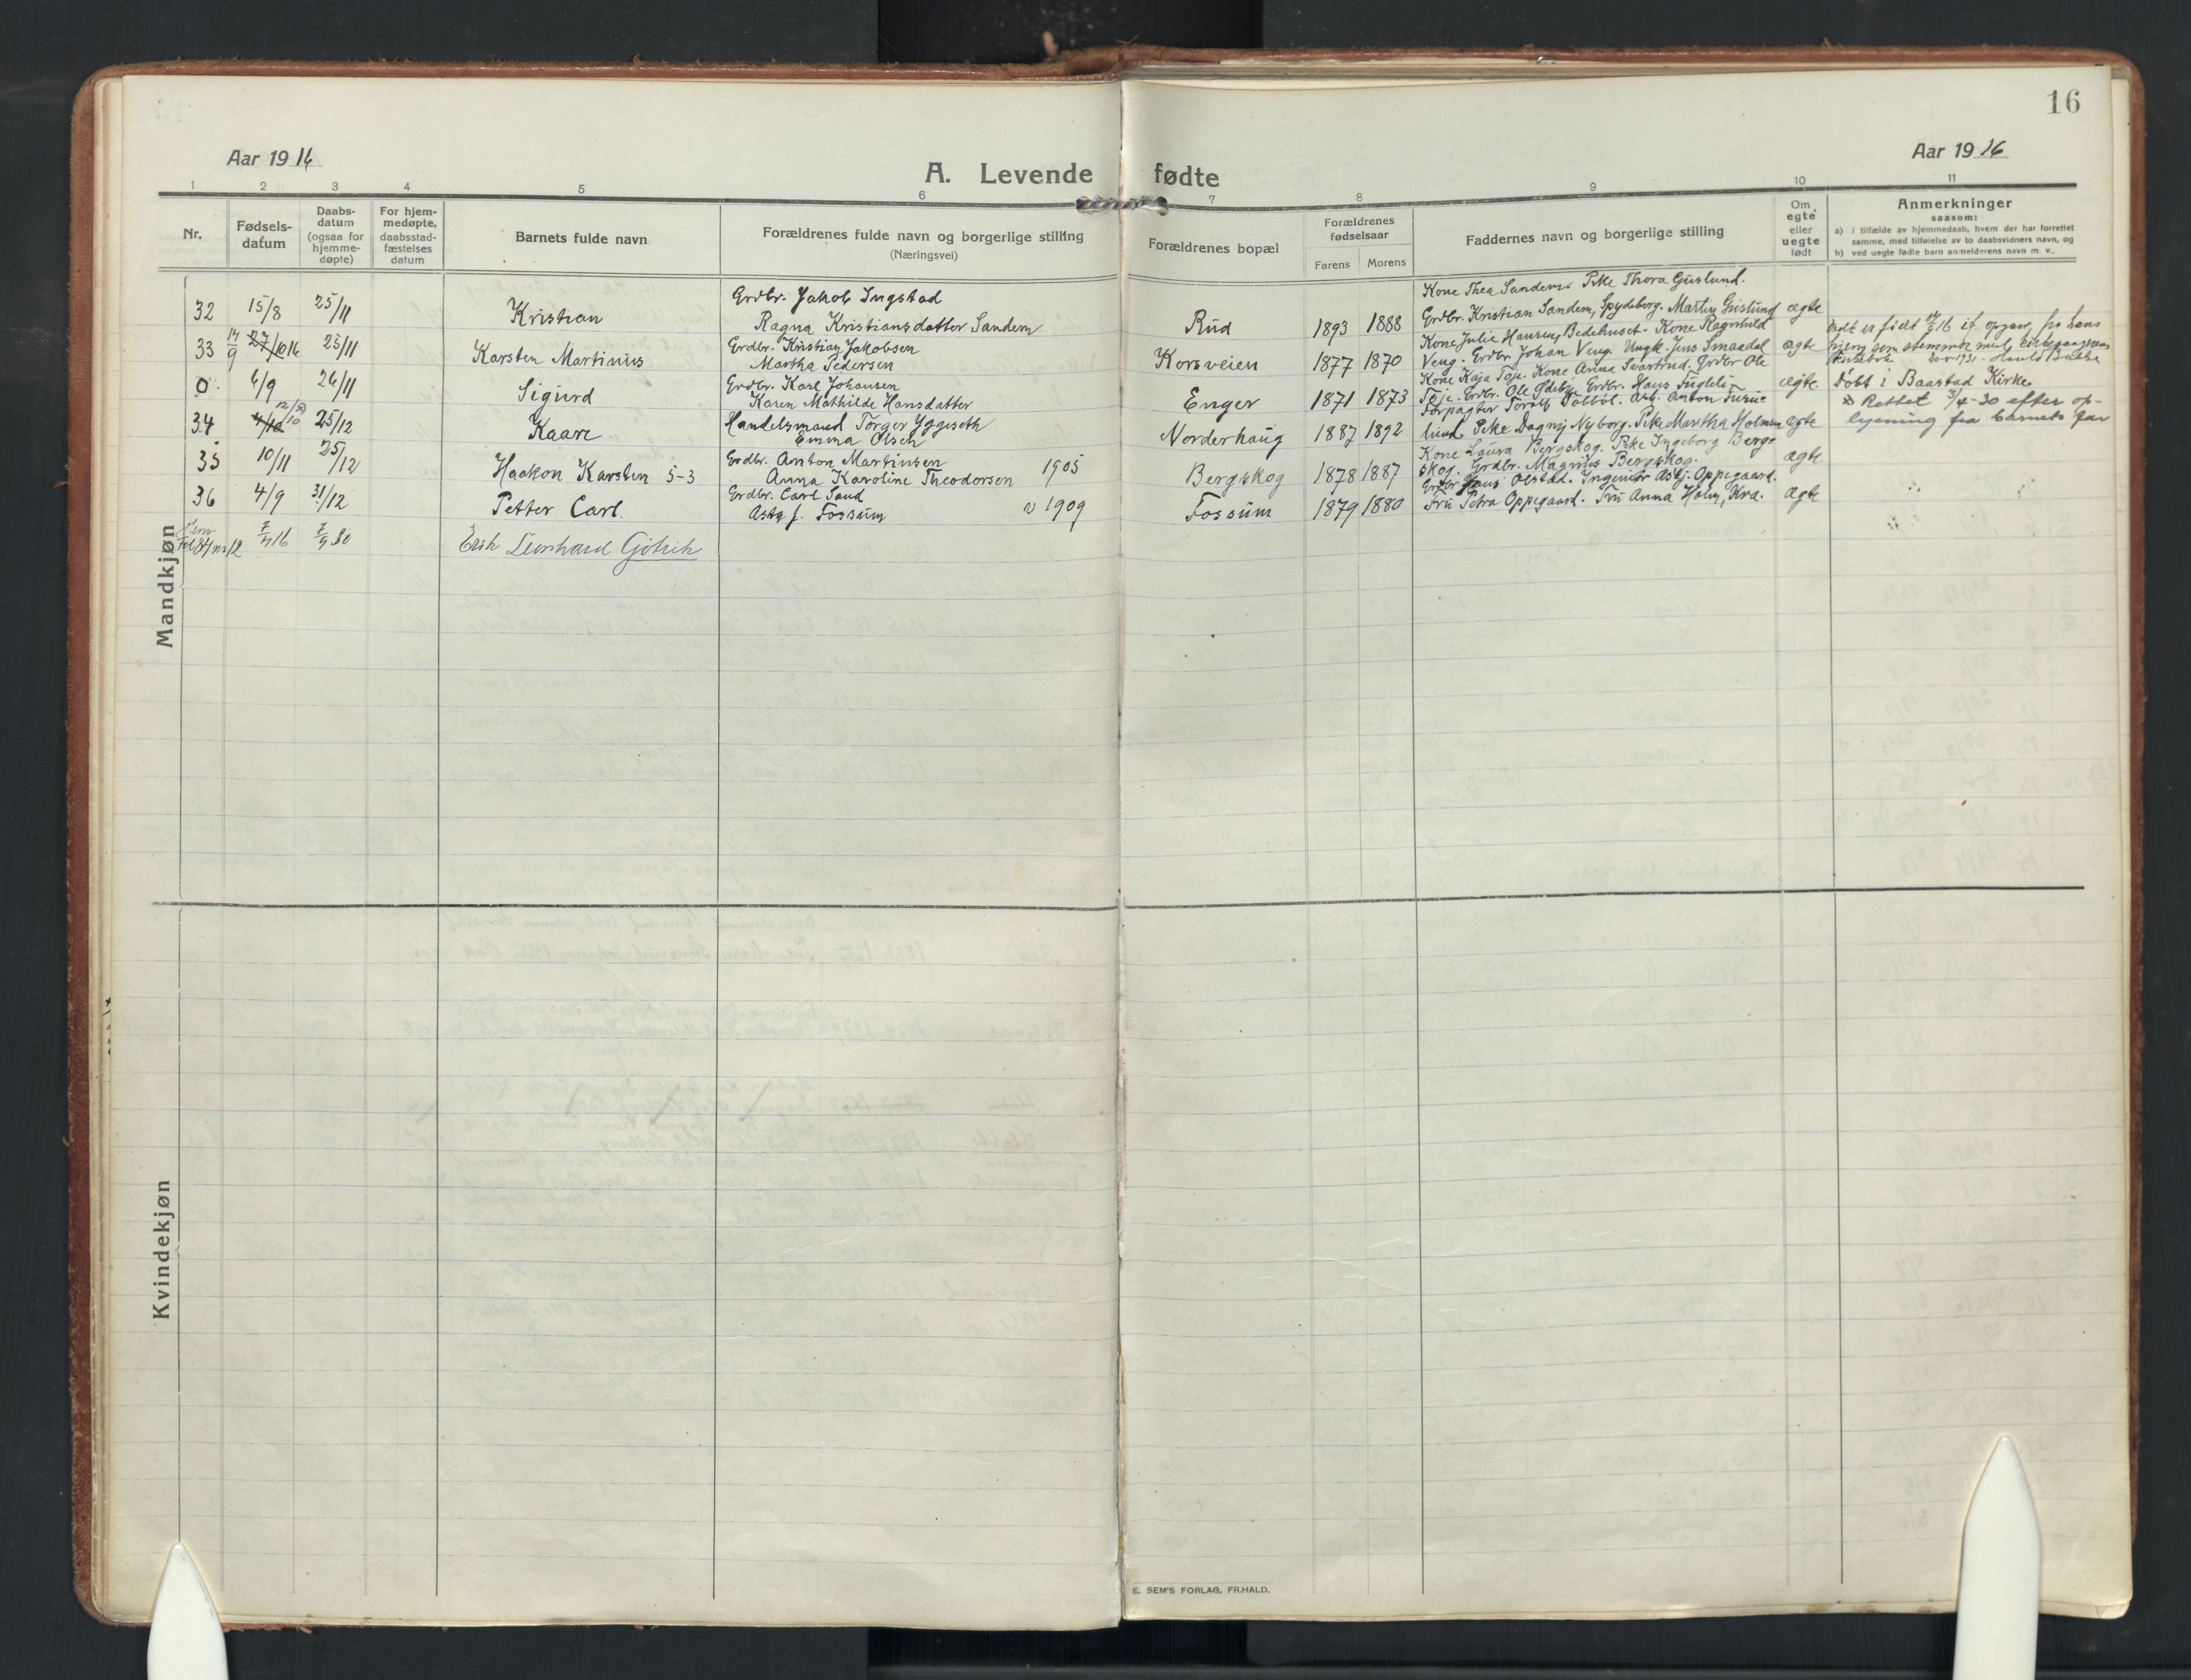 16
Aar 1916
A. Levende fødte
Aar 1916
1 2 3 4 5 6 7 8 9 10 11
Nr.
Fødsels-
datum
Daabs-
datum
(ogsaa for
hjemme-
døpte)
For hjem-
medøpte,
daabsstad-
fæstelses
datum
Barnets fulde navn
Forældrenes fulde navn og borgerlige stilling
(Næringsvei)
Forældrenes bopæl
Forældrenes
fødselsaar
Farens Morens
Faddernes navn og borgerlige stilling
Om
egte
eller
uegte
født
Anmerkninger
saasom:
a) i tilfælde av hjemmedaab, hvem der har forrettet
samme, med tilføielse av to daabsvidners navn, og
b) ved uegte fødte barn anmelderens navn m. v..
Mandkjøn
32 15/8 25/11 Kristian
Grdbr. Jakob Ingstad
Ragna Kristiansdatter Sandem
Rud 1893 1888
Kone Thea Sandem. Pike Thora Guslund.
Grdbr. Kristian Sandem, Spydeberg. Martin Guslund
ægte
33 14/9 27/10 16 25/11 Karsten Martinius
Grdbr. Kristian Jakobsen
Martha Pedersen
Korsveien 1877 1870
Kone Julie Hansen, Bedehuset - Kone Ragnhild
Veng. Grdbr. Johan Veng. Ungk. Jens Smaadal
ægte
0. 6/9 26/11 Sigurd
Grdbr. Karl Johansen
Karen Mathilde Hansdatter
Enger 1871 1873
Kone Kaja Toje. Kone Anna Svartrud. Grdbr Ole
Toje. Grdbr. Ole Ødeby. Grdbr. Hans Fugleli
ægte
Døbt i Baastad Kirke
34 4/10 12/10 25/12 Kaare
Handelsmand Torger Yggeseth
Emma Olsen
Norderhaug 1887 1892
Forpagter Torolf Dobbol. Arb. Anton Furu-
lund. Pike Dagny Nyborg. Pike Martha Holmen
ægte
Rettet 3/4-30 efter op-
lysning fra barnets far
35 10/11 25/12 Haakon Karsten 5-3
Grdbr. Anton Martinsen 1905
Anna Karoline Theodorsen
Bergskog 1878 1887
Kone Laura Bergskog. Pike Ingeborg Berg-
skog. Grdbr. Magnus Bergskog.
ægte
36 4/9 31/12 Petter Carl.
Grdbr. Carl Sand
Astg f. Fossum v 1909
Fossum 1879 1880
Grdbr Hans Olstad. Ingeniør Asbj. Oppegaard.
Fru Petra Oppegaard. Fru Anna Holm, Kra.
ægte
7/7 16 7/9 30
Kvindekjøn
E. SEM'S FORLAG, FR.HALD.